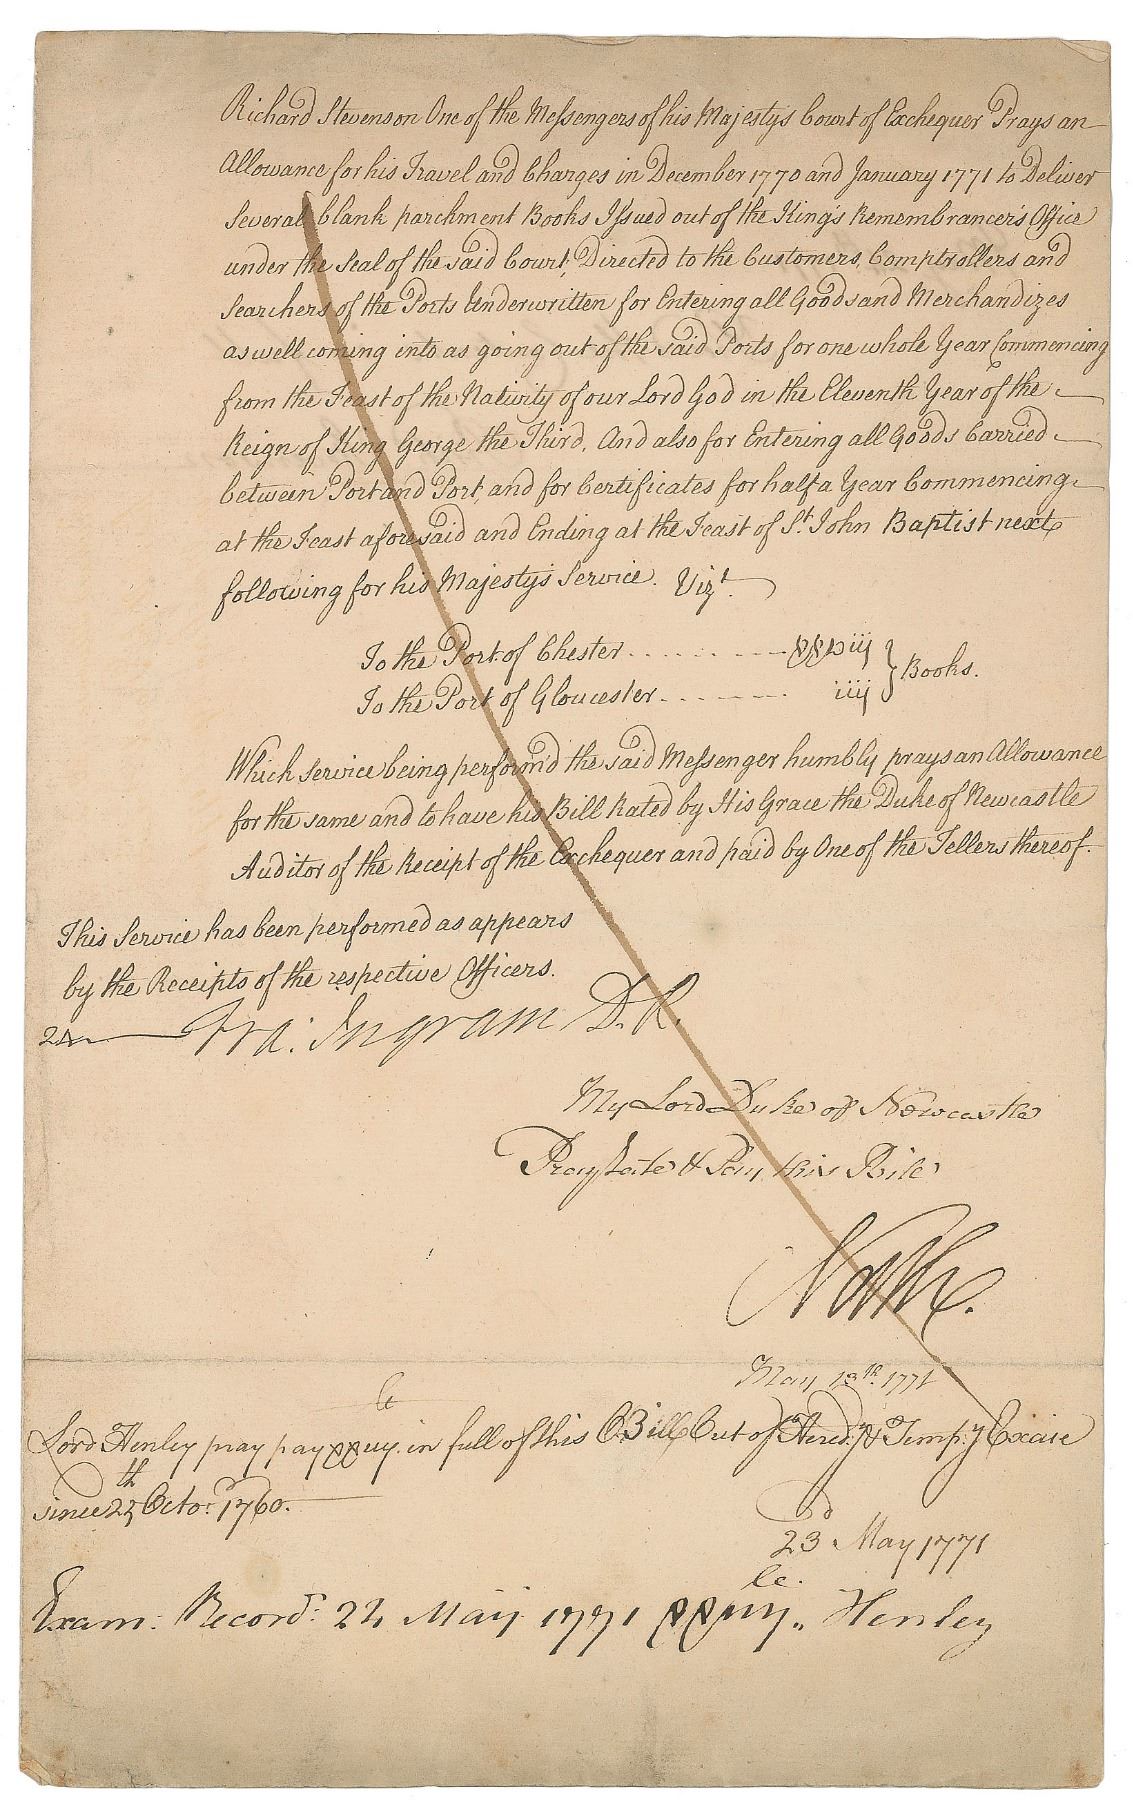 Richard Stevenson One of the Messengers of his Majestys Court of Exchequer Prays an
Allowance for his Travel and Charges in December 1770 and January 1771 to Deliver
Several blank parchment Books Issued out of the King's Remembrancer's Office
under the Seal of the said Court, Directed to the Customers, Comptrollers and
Searchers of the Ports Underwritten for Entering all Goods and Merchandizes
as well coming into as going out of the said Ports for one whole Year Commencing
from the Feast of the Nativity of our Lord God in the Eleventh Year of the
Reign of King George the Third. And also for Entering all Goods Carried
between Port and Port, and for Certificates for half a Year Commencing
at the Feast aforesaid and Ending at the Feast of St. John Baptist next
following for his Majesty's Service. Vizt.
To the Port of Chester
To the Port of Gloucester iiij Books.
Which Service being perform'd the said Messenger humbly prays an Allowance
for the same and to have his Bill Rated by His Grace the Duke of Newcastle
Auditor of the Receipt of the Exchequer and paid by One of the Tellers thereof.
This Service has been performed as appears
by the Receipts of the respective Officers.
Fra: Ingram D.R.
My Lord Duke of Newcastle
Pray rate & Pay this Bill
North.
May 1771
Lord Henley pray pay in full of this Bill Out of Heredy & Tempy Excise
since 25th Octor. 1760.
23d May 1771
Exam: Record: 24 May 1771 Henley